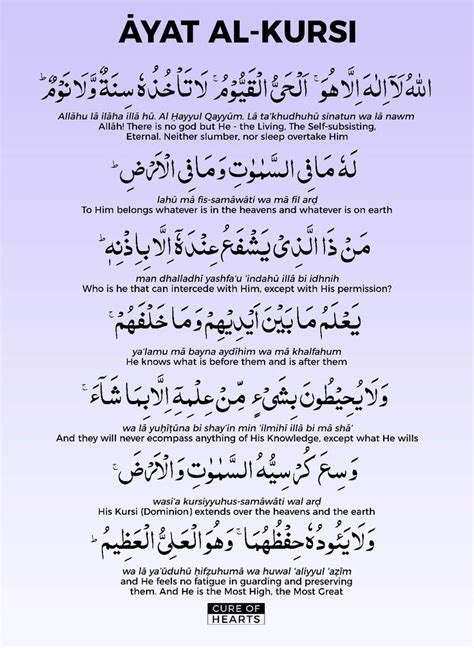 ĀYAT AL-KURSI
اللهُ لَآ اِلٰهَ اِلَّا هُوَ ۚ اَلْحَىُّ الْقَيُّوْمُ ۚ لَا تَاْخُذُهٗ سِنَةٌ وَّلَا نَوْمٌ ؕ
Allāhu lā ilāha illā hū. Al Ḥayyul Qayyūm. Lā ta’khudhuhū sinatun wa lā nawm
Allâh! There is no god but He - the Living, The Self-subsisting,
Eternal. Neither slumber, nor sleep overtake Him
لَهٗ مَا فِى السَّمٰوٰتِ وَمَا فِى الْاَرْضِ ؕ
lahū mā fis-samāwāti wa mā fil arḍ
To Him belongs whatever is in the heavens and whatever is on earth
مَنْ ذَا الَّذِىْ يَشْفَعُ عِنْدَهٗٓ اِلَّا بِاِذْنِهٖ ؕ
man dhalladhī yashfa‘u ‘indahū illā bi idhnih
Who is he that can intercede with Him, except with His permission?
يَعْلَمُ مَا بَيْنَ اَيْدِيْهِمْ وَمَا خَلْفَهُمْ ۚ
ya‘lamu mā bayna aydīhim wa mā khalfahum
He knows what is before them and is after them
وَلَا يُحِيْطُوْنَ بِشَىْءٍ مِّنْ عِلْمِهٖٓ اِلَّا بِمَا شَآءَ ۚ
wa lā yuḥīṭūna bi shay’in min ‘ilmihī illā bi mā shā’
And they will never ecompass anything of His Knowledge, except what He wills
وَسِعَ كُرْسِيُّهُ السَّمٰوٰتِ وَالْاَرْضَ ۚ
wasi‘a kursiyyuhus-samāwāti wal arḍ
His Kursi (Dominion) extends over the heavens and the earth
وَلَا يَئُوْدُهٗ حِفْظُهُمَا ۚ وَهُوَ الْعَلِىُّ الْعَظِيْمُ ؕ
wa lā ya’ūduhū ḥifẓuhumā wa huwal ‘aliyyul ‘aẓīm
and He feels no fatigue in guarding and preserving
them. And He is the Most High, the Most Great
CURE OF
HEARTS